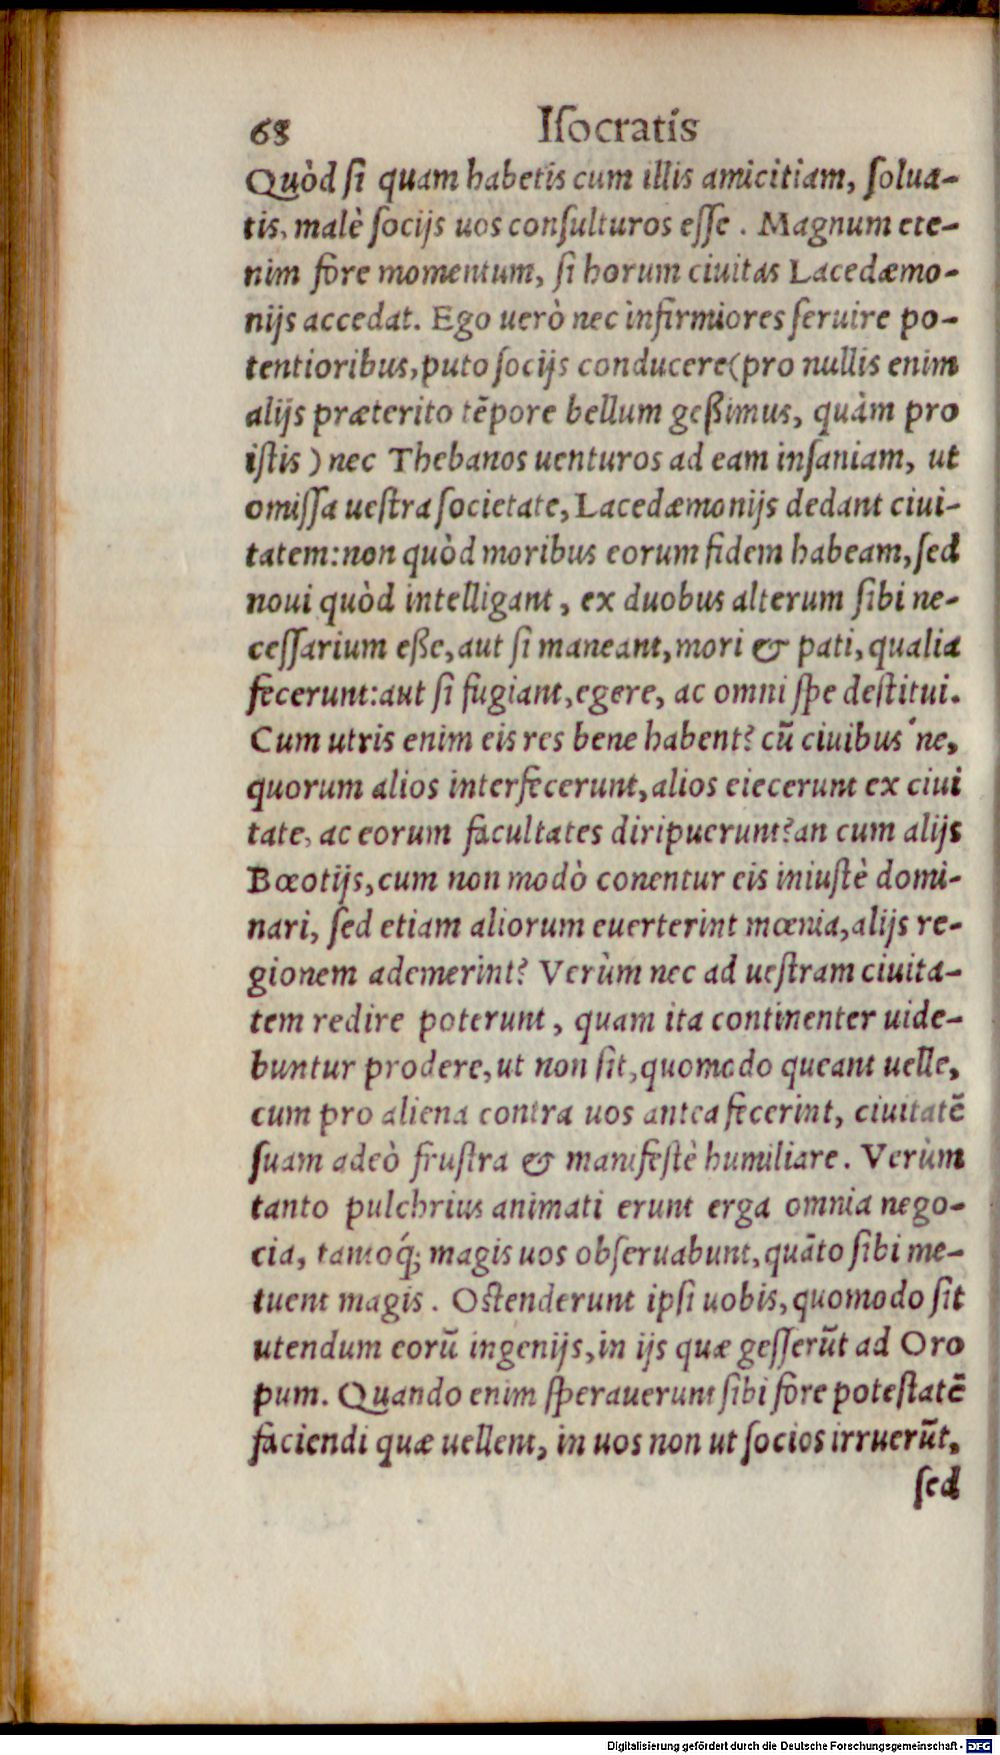 68 Iſocratis
Quòd ſi quam habetis cum illis amicitiam, ſolua-
tis, malè ſocijs uos conſulturos eſſe . Magnum ete-
nim fore momentum, ſi horum ciuitas Lacedæmo-
nijs accedat. Ego uerò nec infirmiores ſeruire po-
tentioribus, puto ſocijs conducere(pro nullis enim
alijs præterito tẽpore bellum geßimus, quàm pro
iſtis ) nec Thebanos uenturos ad eam inſaniam, ut
omiſſa ueſtra ſocietate, Lacedæmonijs dedant ciui-
tatem: non quòd moribus eorum fidem habeam, ſed
noui quòd intelligant , ex duobus alterum ſibi ne-
ceſſarium eße, aut ſi maneant, mori & pati, qualia
fecerunt: aut ſi fugiant, egere, ac omni ſpe deſtitui.
Cum utris enim eis res bene habent? cũ ciuibus ́ne,
quorum alios interfecerunt, alios eiecerunt ex ciui
tate, ac eorum facultates diripuerunt? an cum alijs
Bœotijs, cum non modò conentur eis iniuſtè domi-
nari, ſed etiam aliorum euerterint mœnia, alijs re-
gionem ademerint? Verùm nec ad ueſtram ciuita-
tem redire poterunt , quam ita continenter uide-
buntur prodere, ut non ſit, quomodo queant uelle,
cum pro aliena contra uos antea fecerint, ciuitatẽ
ſuam adeò fruſtra & manifeſtè humiliare . Verùm
tanto pulchrius animati erunt erga omnia nego-
cia, tantoq́; magis uos obſeruabunt, quãto ſibi me-
tuent magis . Oſtenderunt ipſi uobis, quomodo ſit
utendum eorũ ingenijs, in ijs quæ geſſerũt ad Oro
pum. Quando enim ſperauerunt ſibi fore poteſtatẽ
faciendi quæ uellent, in uos non ut ſocios irruerũt,
ſed
Digitalisierung gefördert durch die Deutsche Forschungsgemeinschaft - DFG